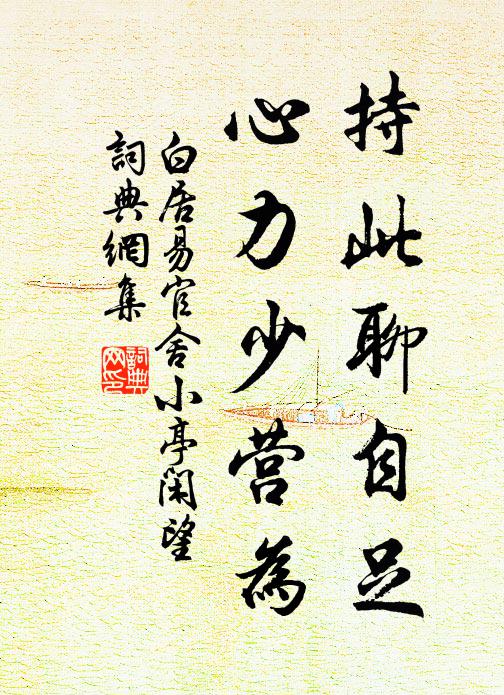 持此聊自足
心力少营為
白居易官舍小亭閑望
詞典網集
詞典
网印